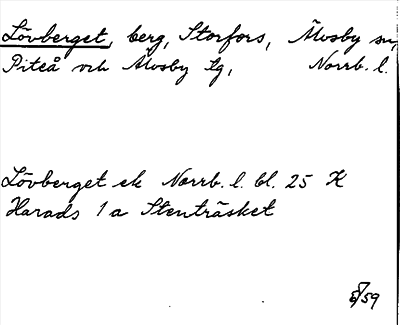 Lövberget, berg, Storfors, Älvsby sn,
Piteå och Älvsby tg, Norrb. l.
Lövberget ek Norrb. l. bl. 25 K
Harads 1 a Stenträsket
/59